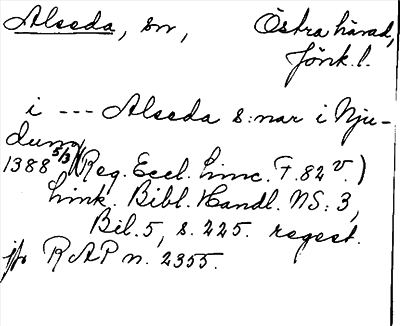 Alseda, sn, Östra härad,
Jönk.l.
i --- Alseda s:nar i Nju-
dung
1388 5/3 (Reg. Eccl. Linc. F. 82 v.)
Link. Bibl. Handl. NS: 3,
Bil. 5, s. 225. regest.
jfr RAP n. 2355.